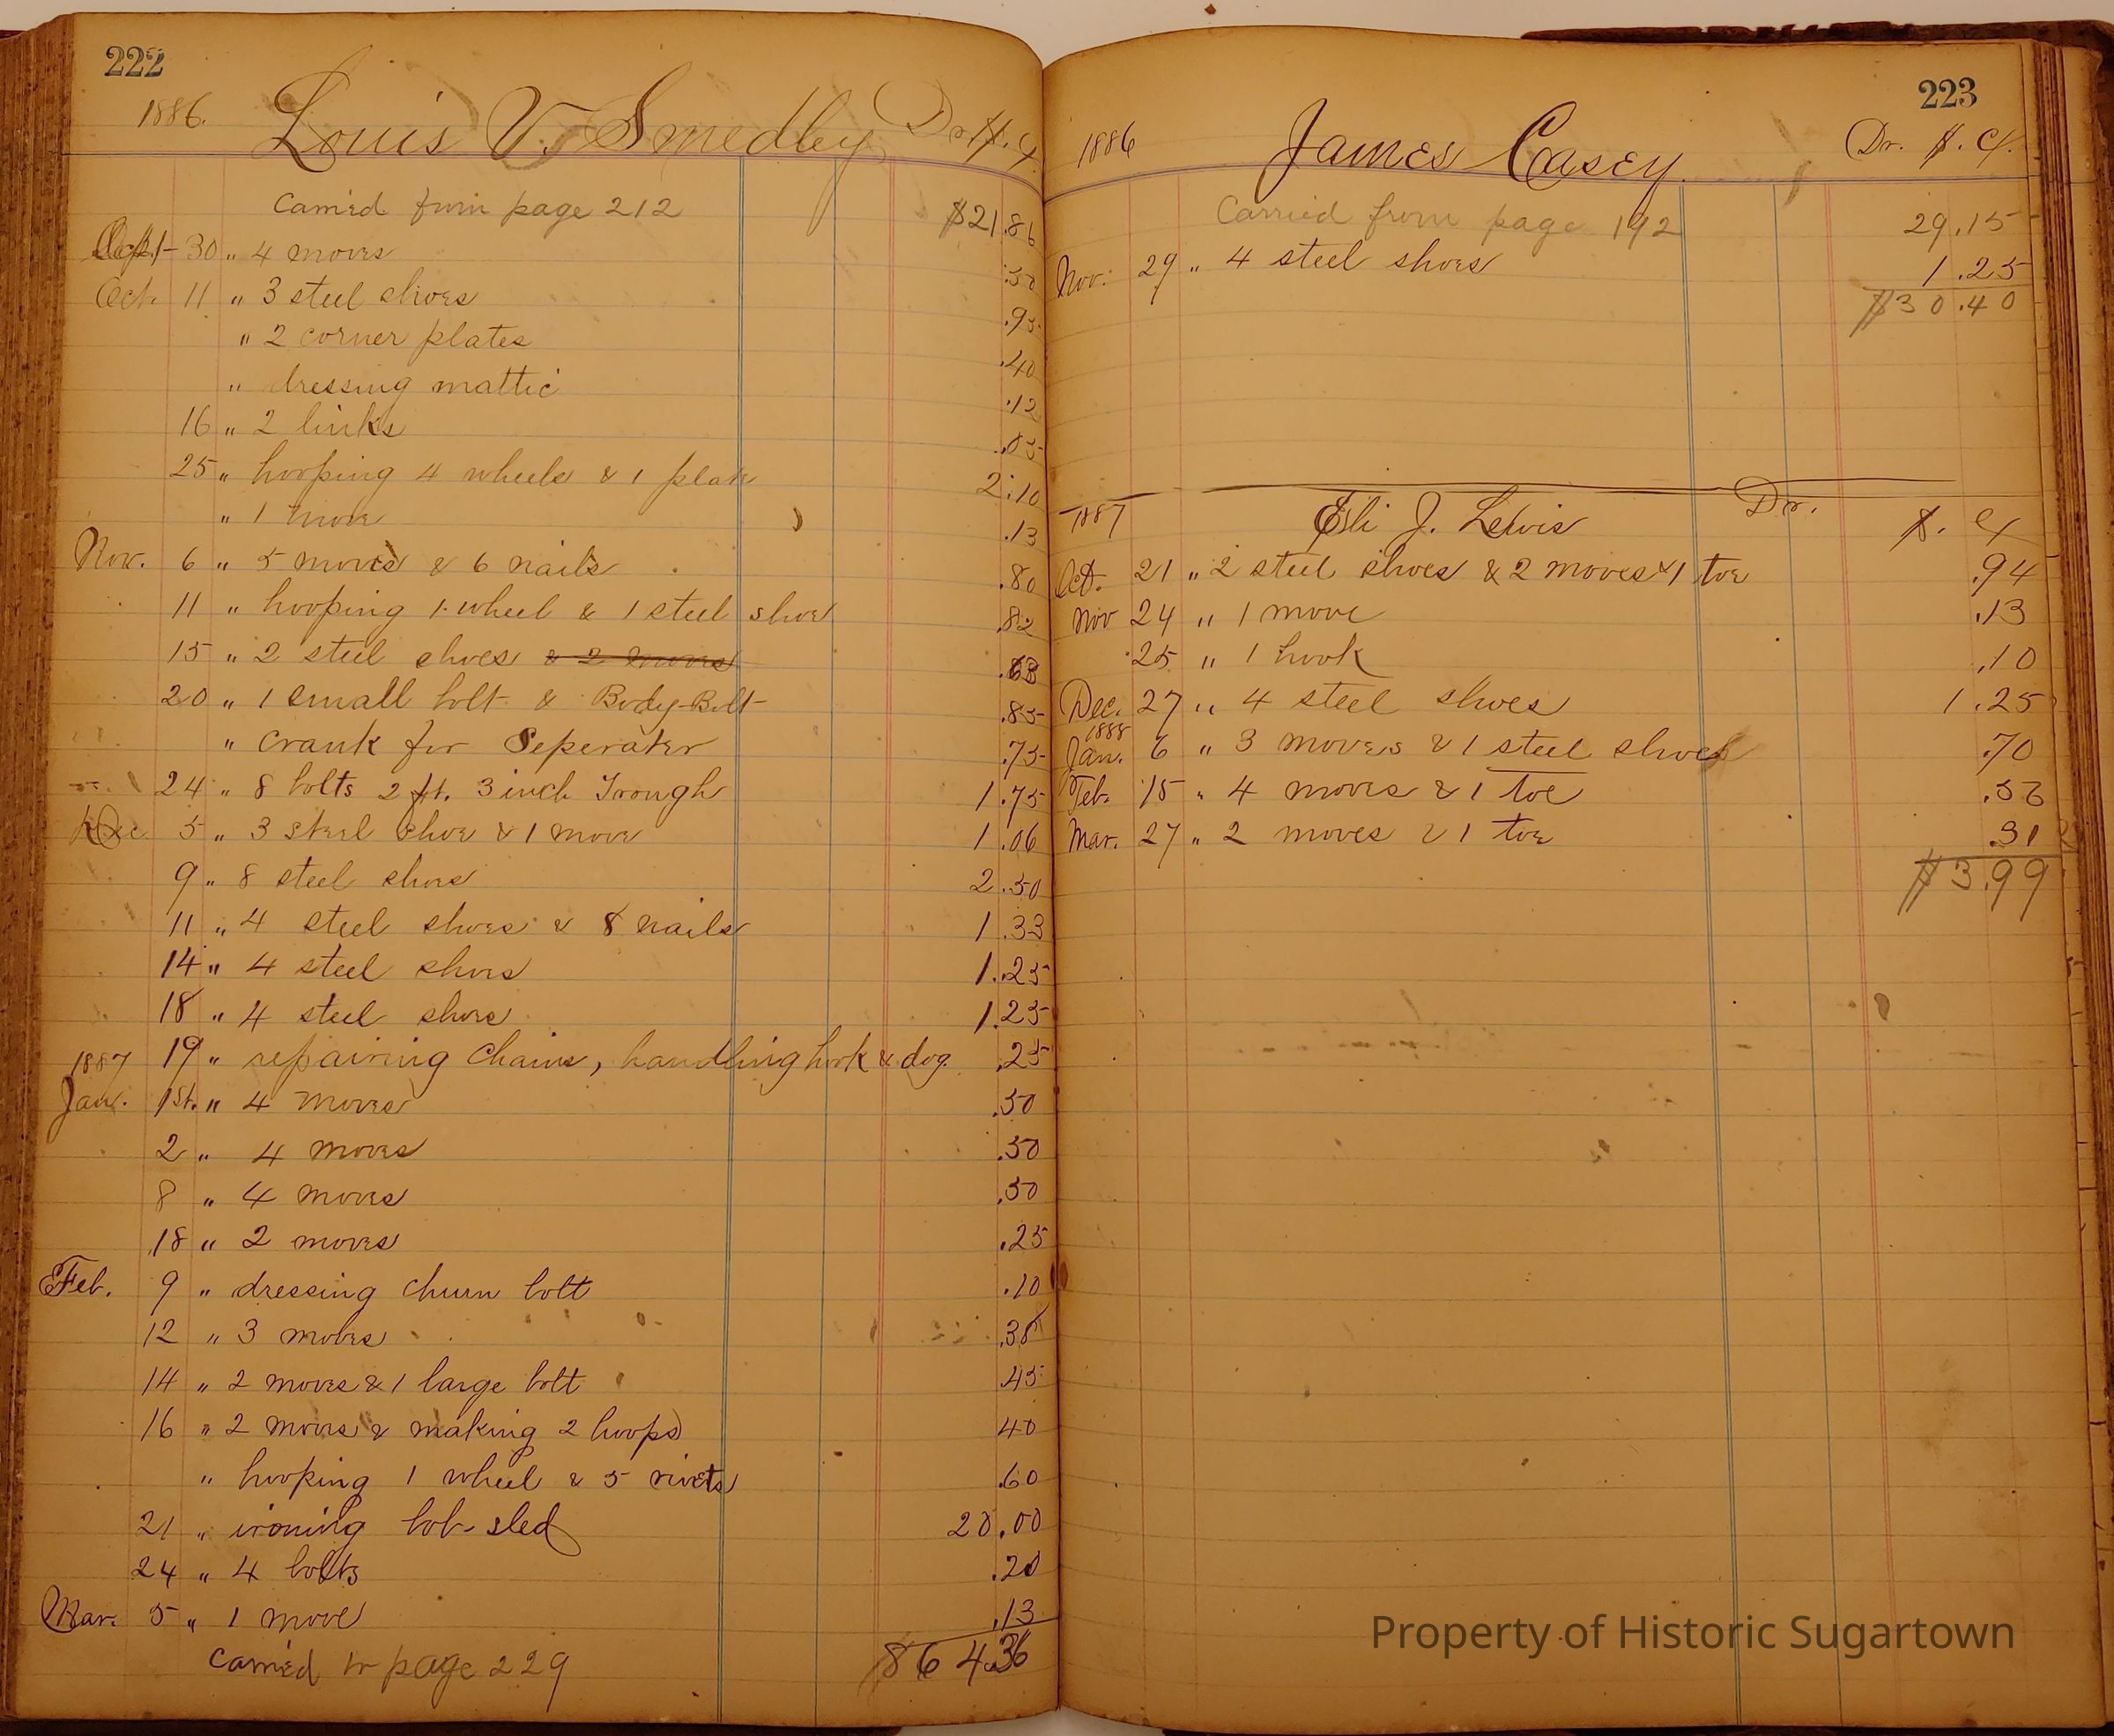 222
1886. Louis V. Smedley Dr $. c
Carried from page 212 $21.86
Sept 30 " 4 moves .50
Oct. 11 " 3 steel shoes .95
" 2 corner plates .40
" dressing mattic .12
16 " 2 links .05
25 " hooping 4 wheels & 1 plate 2.10
" 1 move .13
Nov. 6 " 5 moves & 6 nails .80
11 " hooping 1 wheel & 1 steel shoe .82
15 " 2 steel shoes & 2 moves .63
20 " 1 small bolt & Body-Bolt .85
" crank for Seperator .75
24 " 8 bolts 2 ft. 3 inch Trough 1.75
Dec 5 " 3 steel shoe & 1 move 1.06
9 " 8 steel shoes 2.50
11 " 4 steel shoes & 8 nails 1.33
14 " 4 steel shoes 1.25
18 " 4 steel shoes 1.25
1887 19 " repairing chains, handling hook & dog. .25
Jan. 1st. " 4 moves .50
2 " 4 moves .50
8 " 4 moves .50
18 " 2 moves .25
Feb. 9 " dressing churn bolt .10
12 " 3 moves .38
14 " 2 moves & 1 large bolt .45
16 " 2 moves & making 2 hoops 40
" hooping 1 wheel & 5 rivets .60
21 " ironing bob-sled 20.00
24 " 4 bolts .20
Mar. 5 " 1 move .13
Carried to page 229
223
1886 James Casey Dr. $. c.
Carried from page 192 29.15
Nov. 29 " 4 steel shoes 1.25
$30.40
1887 Eli J. Lewis Dr. $. c
Oct. 21 " 2 steel shoes & 2 moves & 1 toe .94
Nov 24 " 1 move .13
25 " 1 hook .10
Dec. 27 " 4 steel shoes 1.25
1888
Jan. 6 " 3 moves & 1 steel shoe .70
Feb. 15 " 4 moves & 1 toe .56
Mar. 27 " 2 moves & 1 toe .31
$3.99
Property of Historic Sugartown